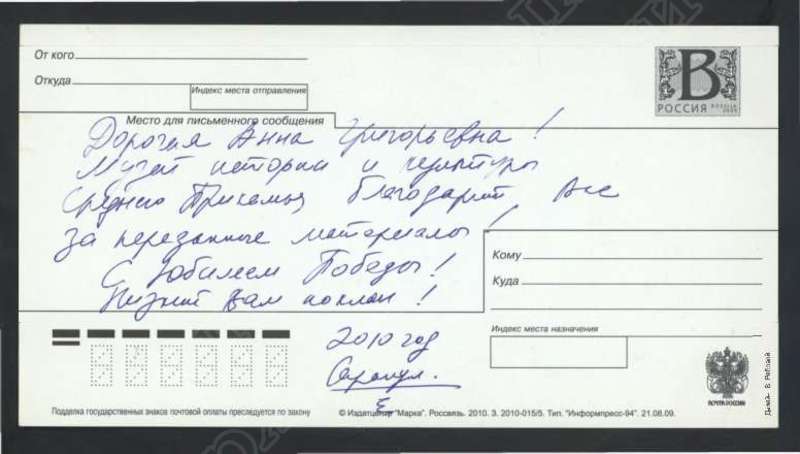 От кого
Откуда
Индекс места отправления
В
РОССИЯ
Место для письменного сообщения
Дорогая Анна Григорьевна!
Музей истории и культуры
Среднего Прикамья благодарит Вас
за переданные материалы!
С Юбилеем Победы!
Низкий Вам поклон!
2010 год
Сарапул.
Кому
Куда
Индекс места назначения
ПОЧТА РОССИИ
Подделка государственных знаков почтовой оплаты преследуется по закону
© Издатцентр "Марка". Россвязь. 2010. З. 2010-015/5. Тип. "Информпресс-94". 21.08.09.